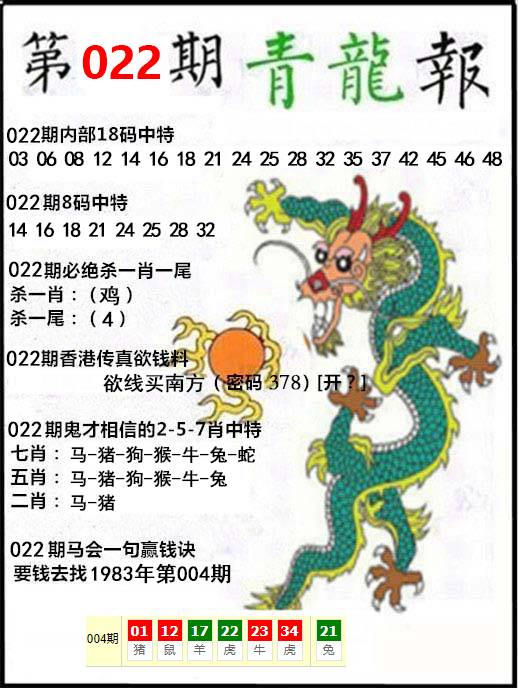 第022期 青龍報
022期内部18码中特
03 06 08 12 14 16 18 21 24 25 28 32 35 37 42 45 46 48
022期8码中特
14 16 18 21 24 25 28 32
022期必绝杀一肖一尾
杀一肖：（鸡）
杀一尾：（4）
022期香港传真欲钱料
欲线买南方（密码378）[开？]
022期鬼才相信的2-5-7肖中特
七肖：马-猪-狗-猴-牛-兔-蛇
五肖：马-猪-狗-猴-牛-兔
二肖：马-猪
022期马会一句赢钱诀
要钱去找1983年第004期
004期 01 12 17 22 23 34 21
猪 鼠 羊 虎 牛 虎 兔